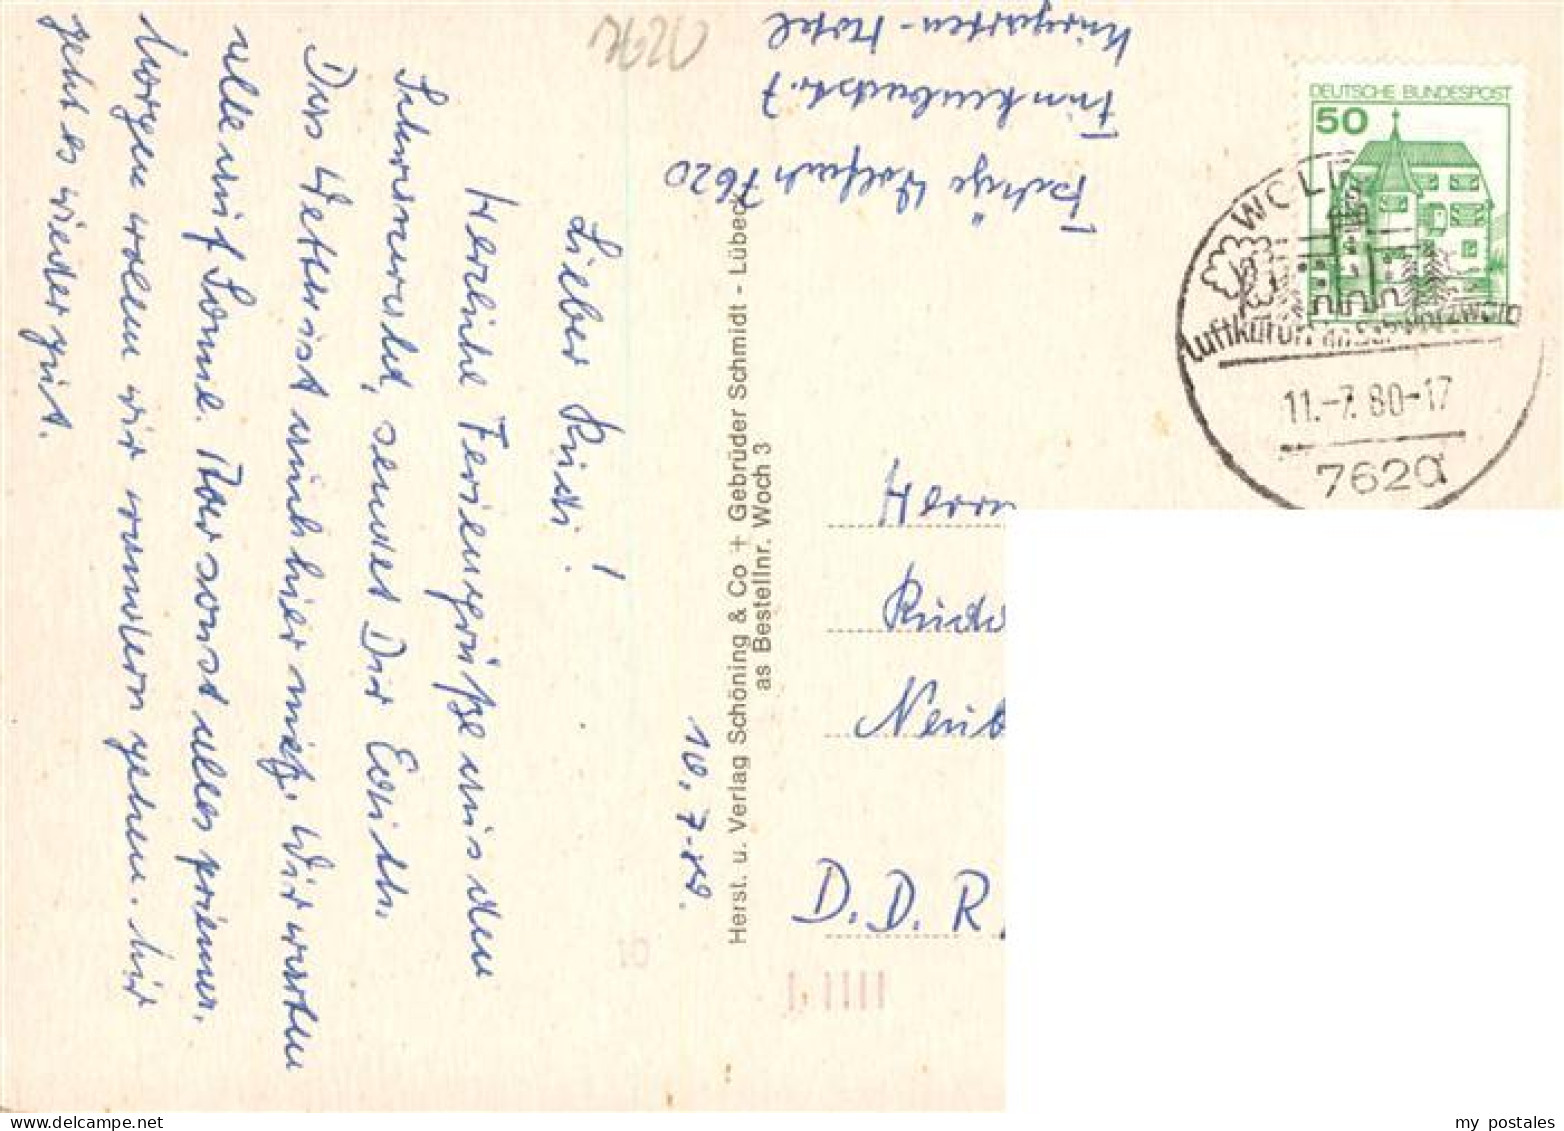 Lieber Rudi!
Herzliche Feriengrüße aus dem
Schwarzwald, sendet Dir Edith.
Das Wetter ist auch hier mies. Wir warten
alle auf Sonne. Aber sonst alles prima.
Morgen wollen wir wandern gehen. Mir
geht es wieder gut.
10.7.80.
7620
Kurgarten-Hotel
Funkenbadstr. 7
Wolfach 7620
Herst. u. Verlag Schöning & Co + Gebrüder Schmidt - Lübeck
as Bestellnr. Woch 3
DEUTSCHE BUNDESPOST
50
WOLF
Luftkurort im Schwarzwald
11.-7.80-17
7620
Herrn
Rudo
Neub
D.D.R.
01
my postales